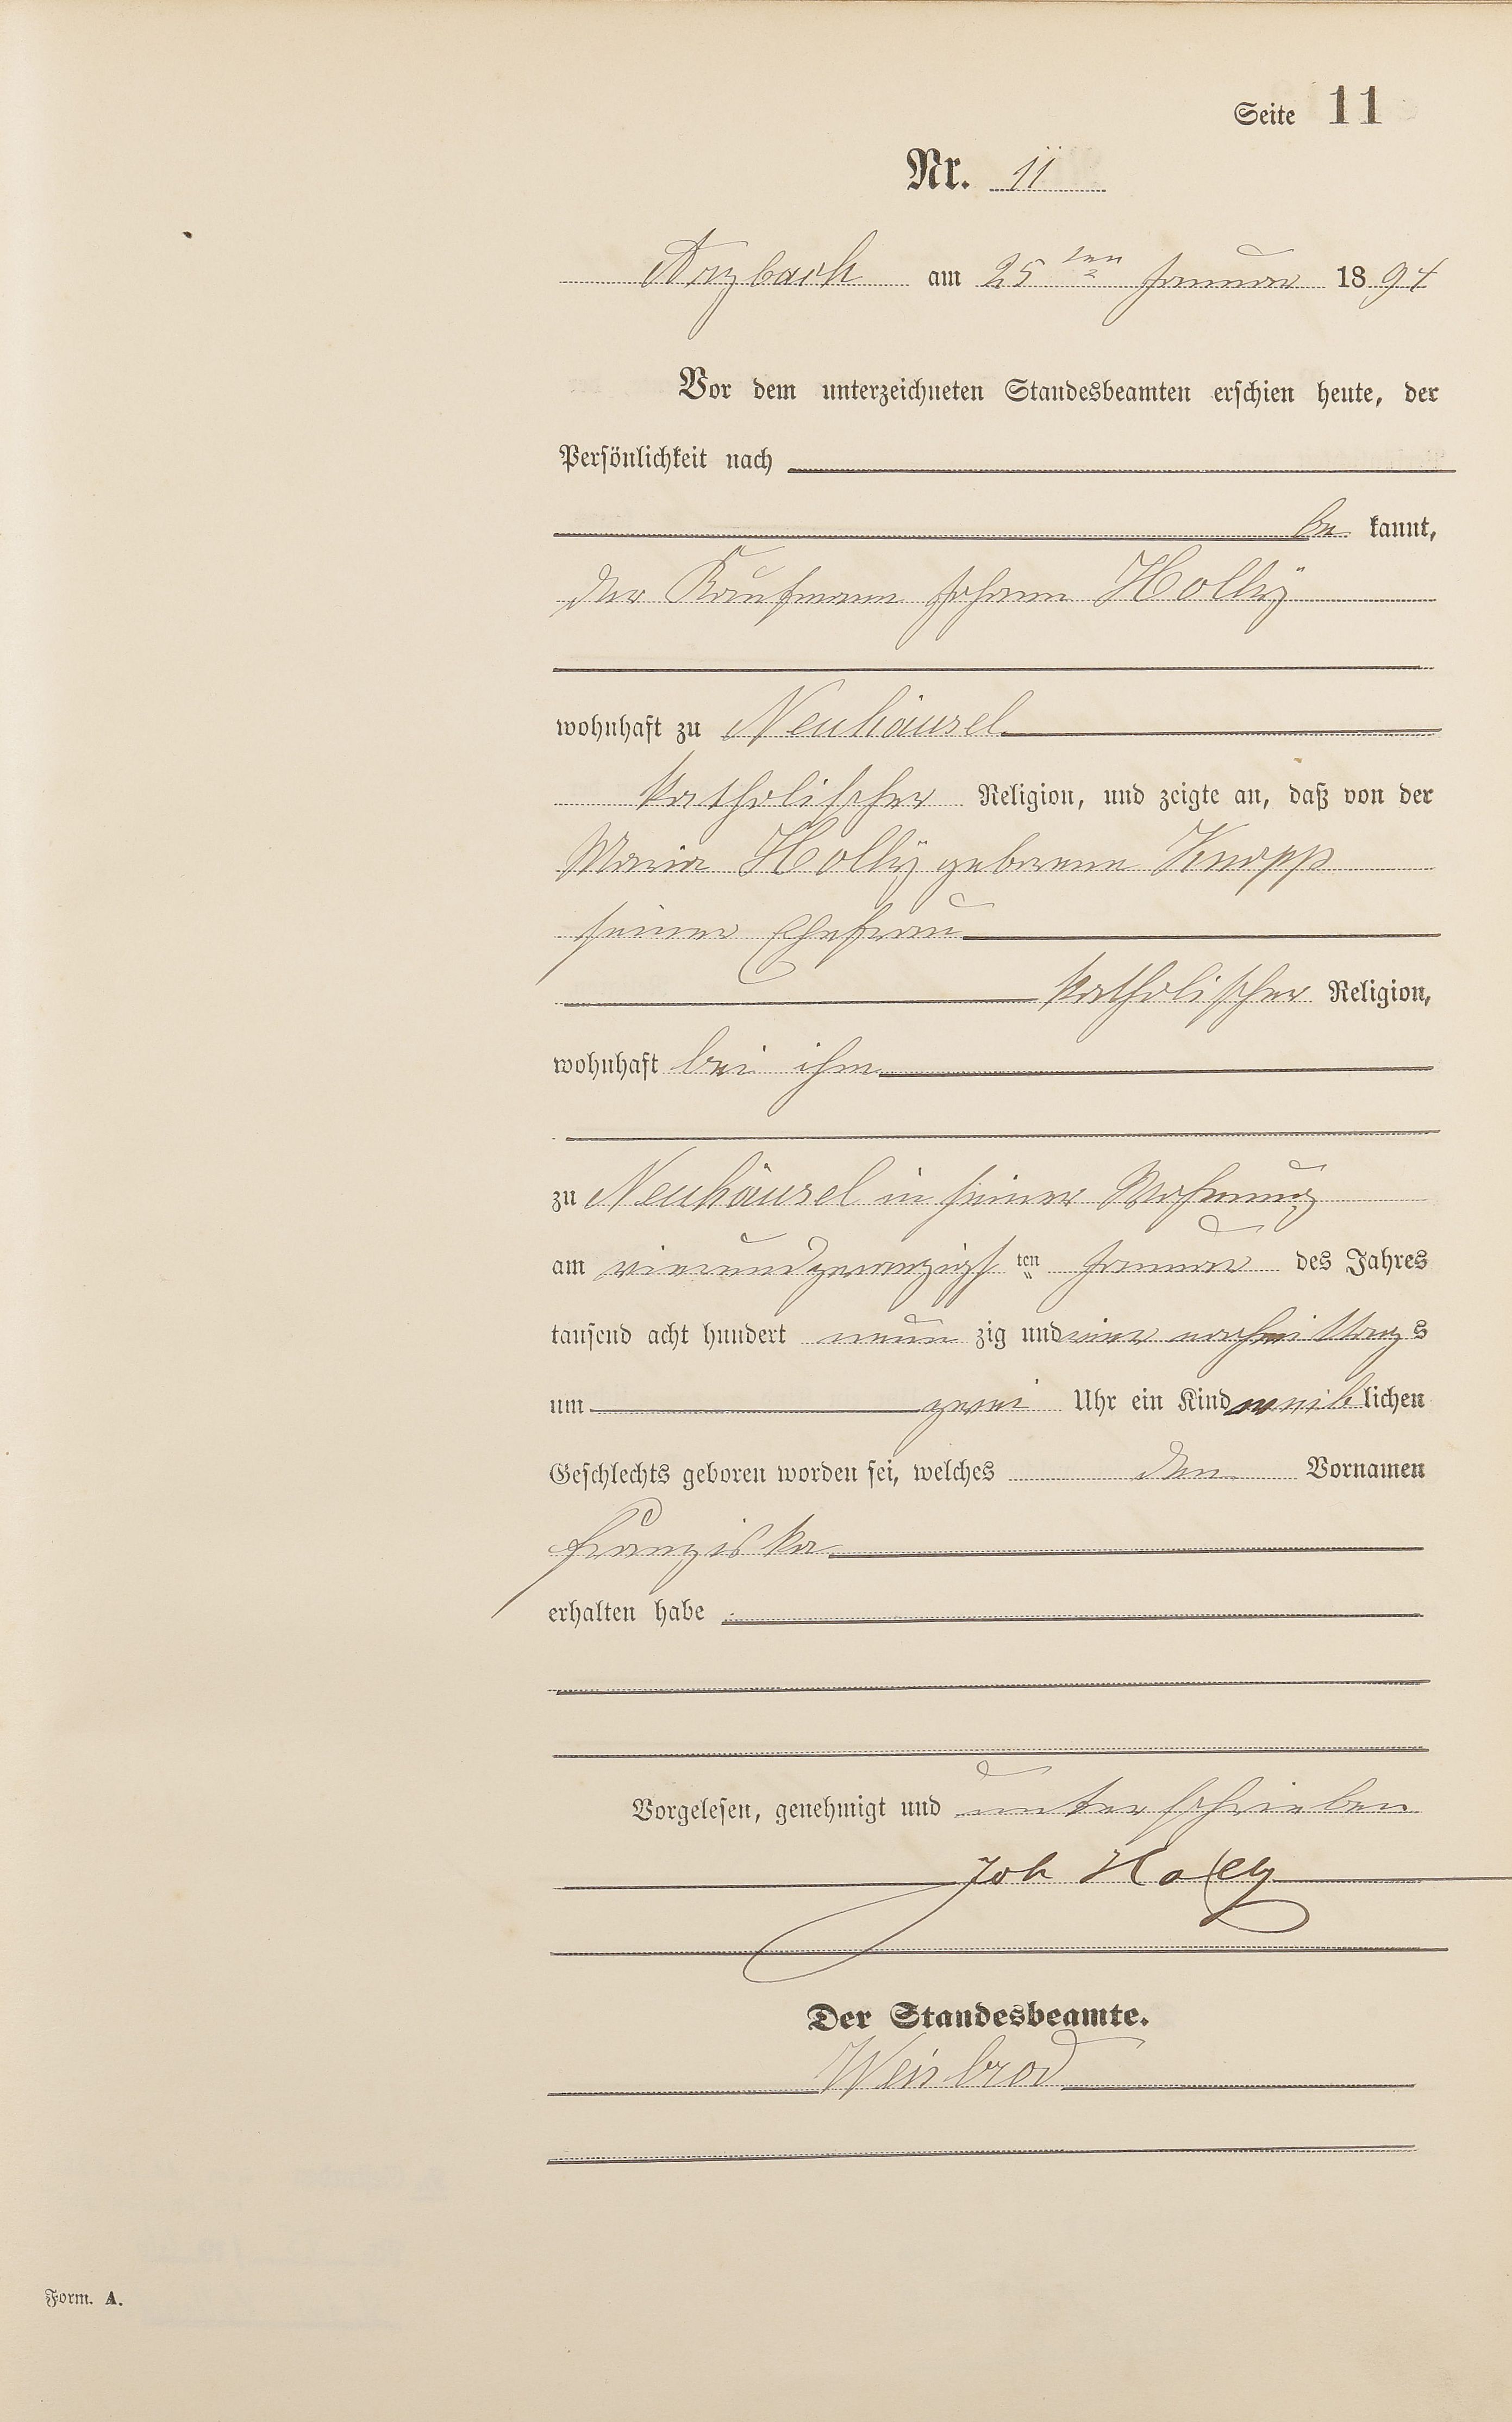 Seite 11
Nr. 11
Arzbach am 25ten Januar 1894
Vor dem unterzeichneten Standesbeamten erschien heute, der
Persönlichkeit nach
be kannt,
der Kaufmann Johann Hollÿ
wohnhaft zu Neuhäusel
katholischer Religion, und zeigte an, daß von der
Maria Hollÿ geborene Knopp
seiner Ehefrau
katholischer Religion,
wohnhaft bei ihm
zu Neuhäusel in seiner Wohnung
am vierundzwanzigsten Januar des Jahres
tausend acht hundert neun zig und vier nachmittags
um zwei Uhr ein Kind weiblichen
Geschlechts geboren worden sei, welches den Vornamen
Franziska
erhalten habe
Vorgelesen, genehmigt und unterschrieben
Joh Holly
Der Standesbeamte.
Weisbrod
Form. A.